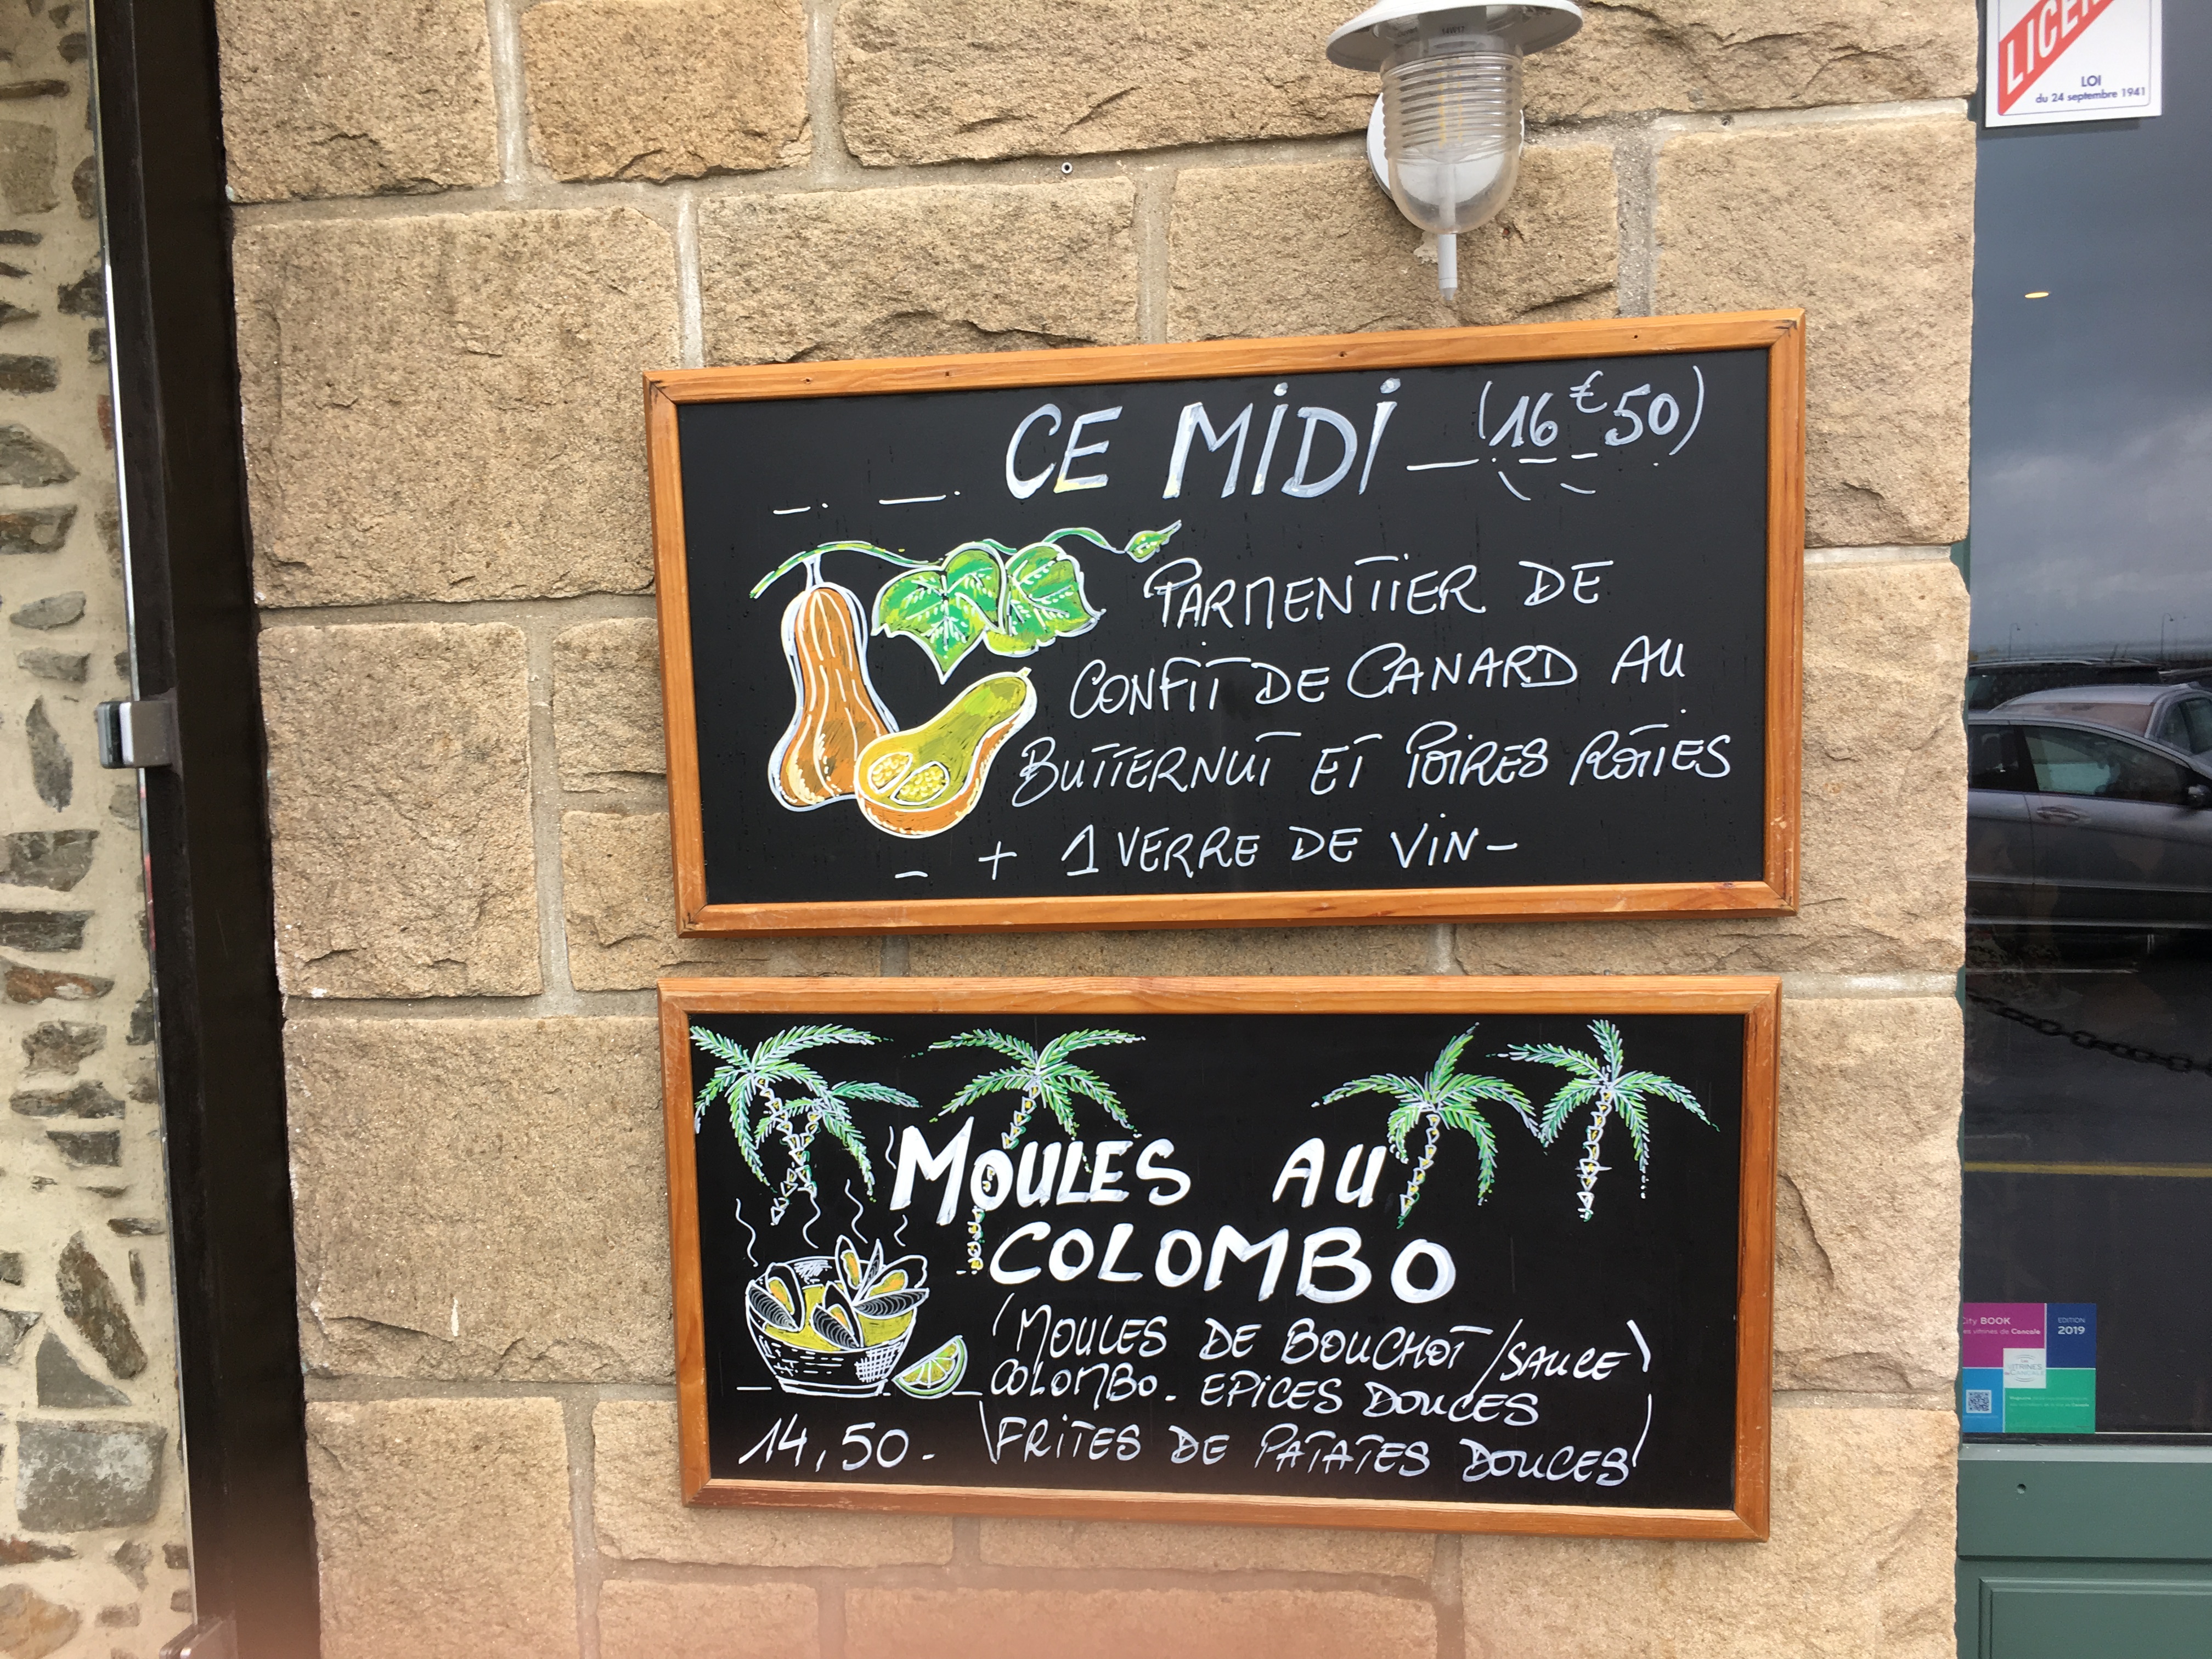 LOI
du 24 septembre 1941
CE MIDI (16€50)
PARMENTIER DE
CONFIT DE CANARD AU
BUTTERNUT ET POIRES RÔTIES
+ 1 VERRE DE VIN-
MOULES AU
COLOMBO
(MOULES DE BOUCHOT/SAUCE)
COLOMBO. EPICES DOUCES
(FRITES DE PATATES DOUCES)
14,50.
City BOOK
EDITION
2019
les vitrines de Cancale
VITRINES